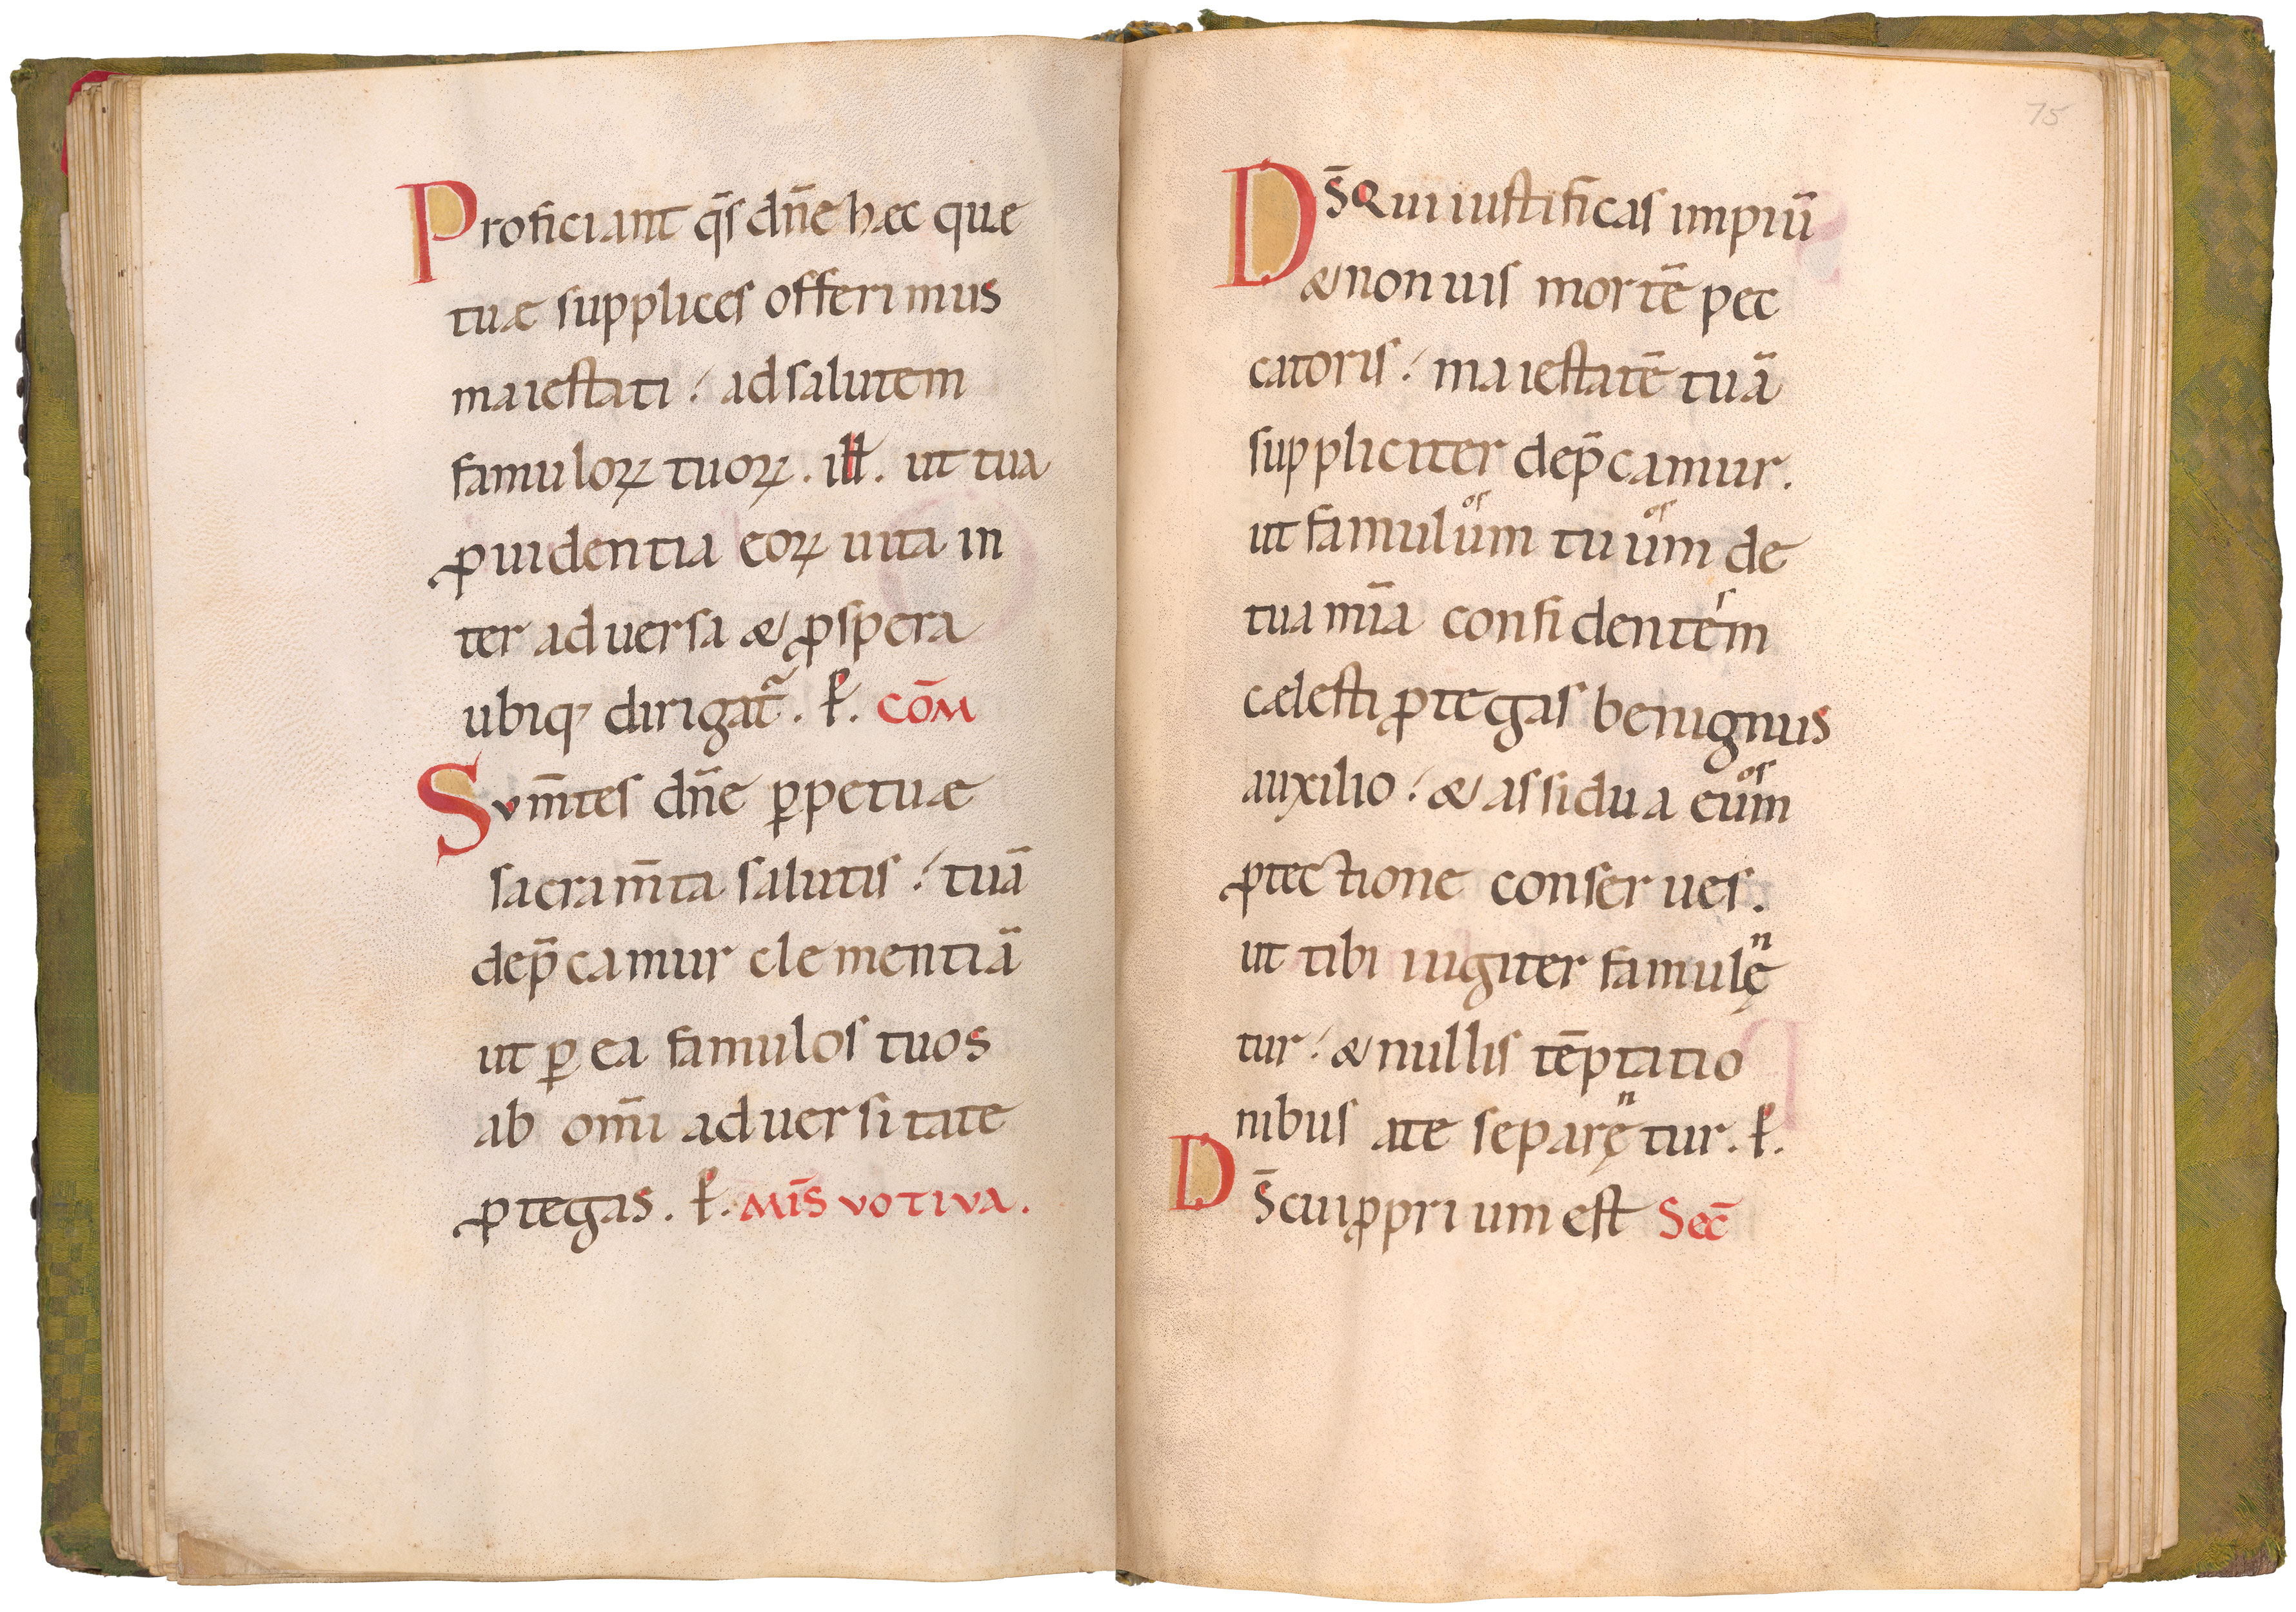 Proficiant q̄s dn̄e hæc quæ
tuæ supplices offerimus
maiestati ad salutem
famuloꝝ tuoꝝ. ill̵. ut tua
ꝓuidentia eoꝝ uita in
ter aduersa & ꝓspera
ubiq; dirigat᷑. P̄. COM̄
Sum̄tes dn̄e ꝑpetuæ
sacram̄ta salutis tuā
dep̄camur clementiā
ut ꝑ ea famulos tuos
ab om̄i aduersitate
ꝓtegas. P̄. MIS̄ VOTIVA.
75
DS̄ Qui iustificas impiū
& non uis mortē pec
catoris maiestatē tuā
suppliciter dep̄camur.
ut famulum os tuum os de
tua mīa confidentem s
cælesti ꝓtegas benignus
auxilio & assidua eum os
ꝓtectione conserues.
ut tibi iugiter famulę n
tur & nullis tēptatio
nibus a te separę n tur. P̄.
DS̄ cui ꝓprium est Sec̄